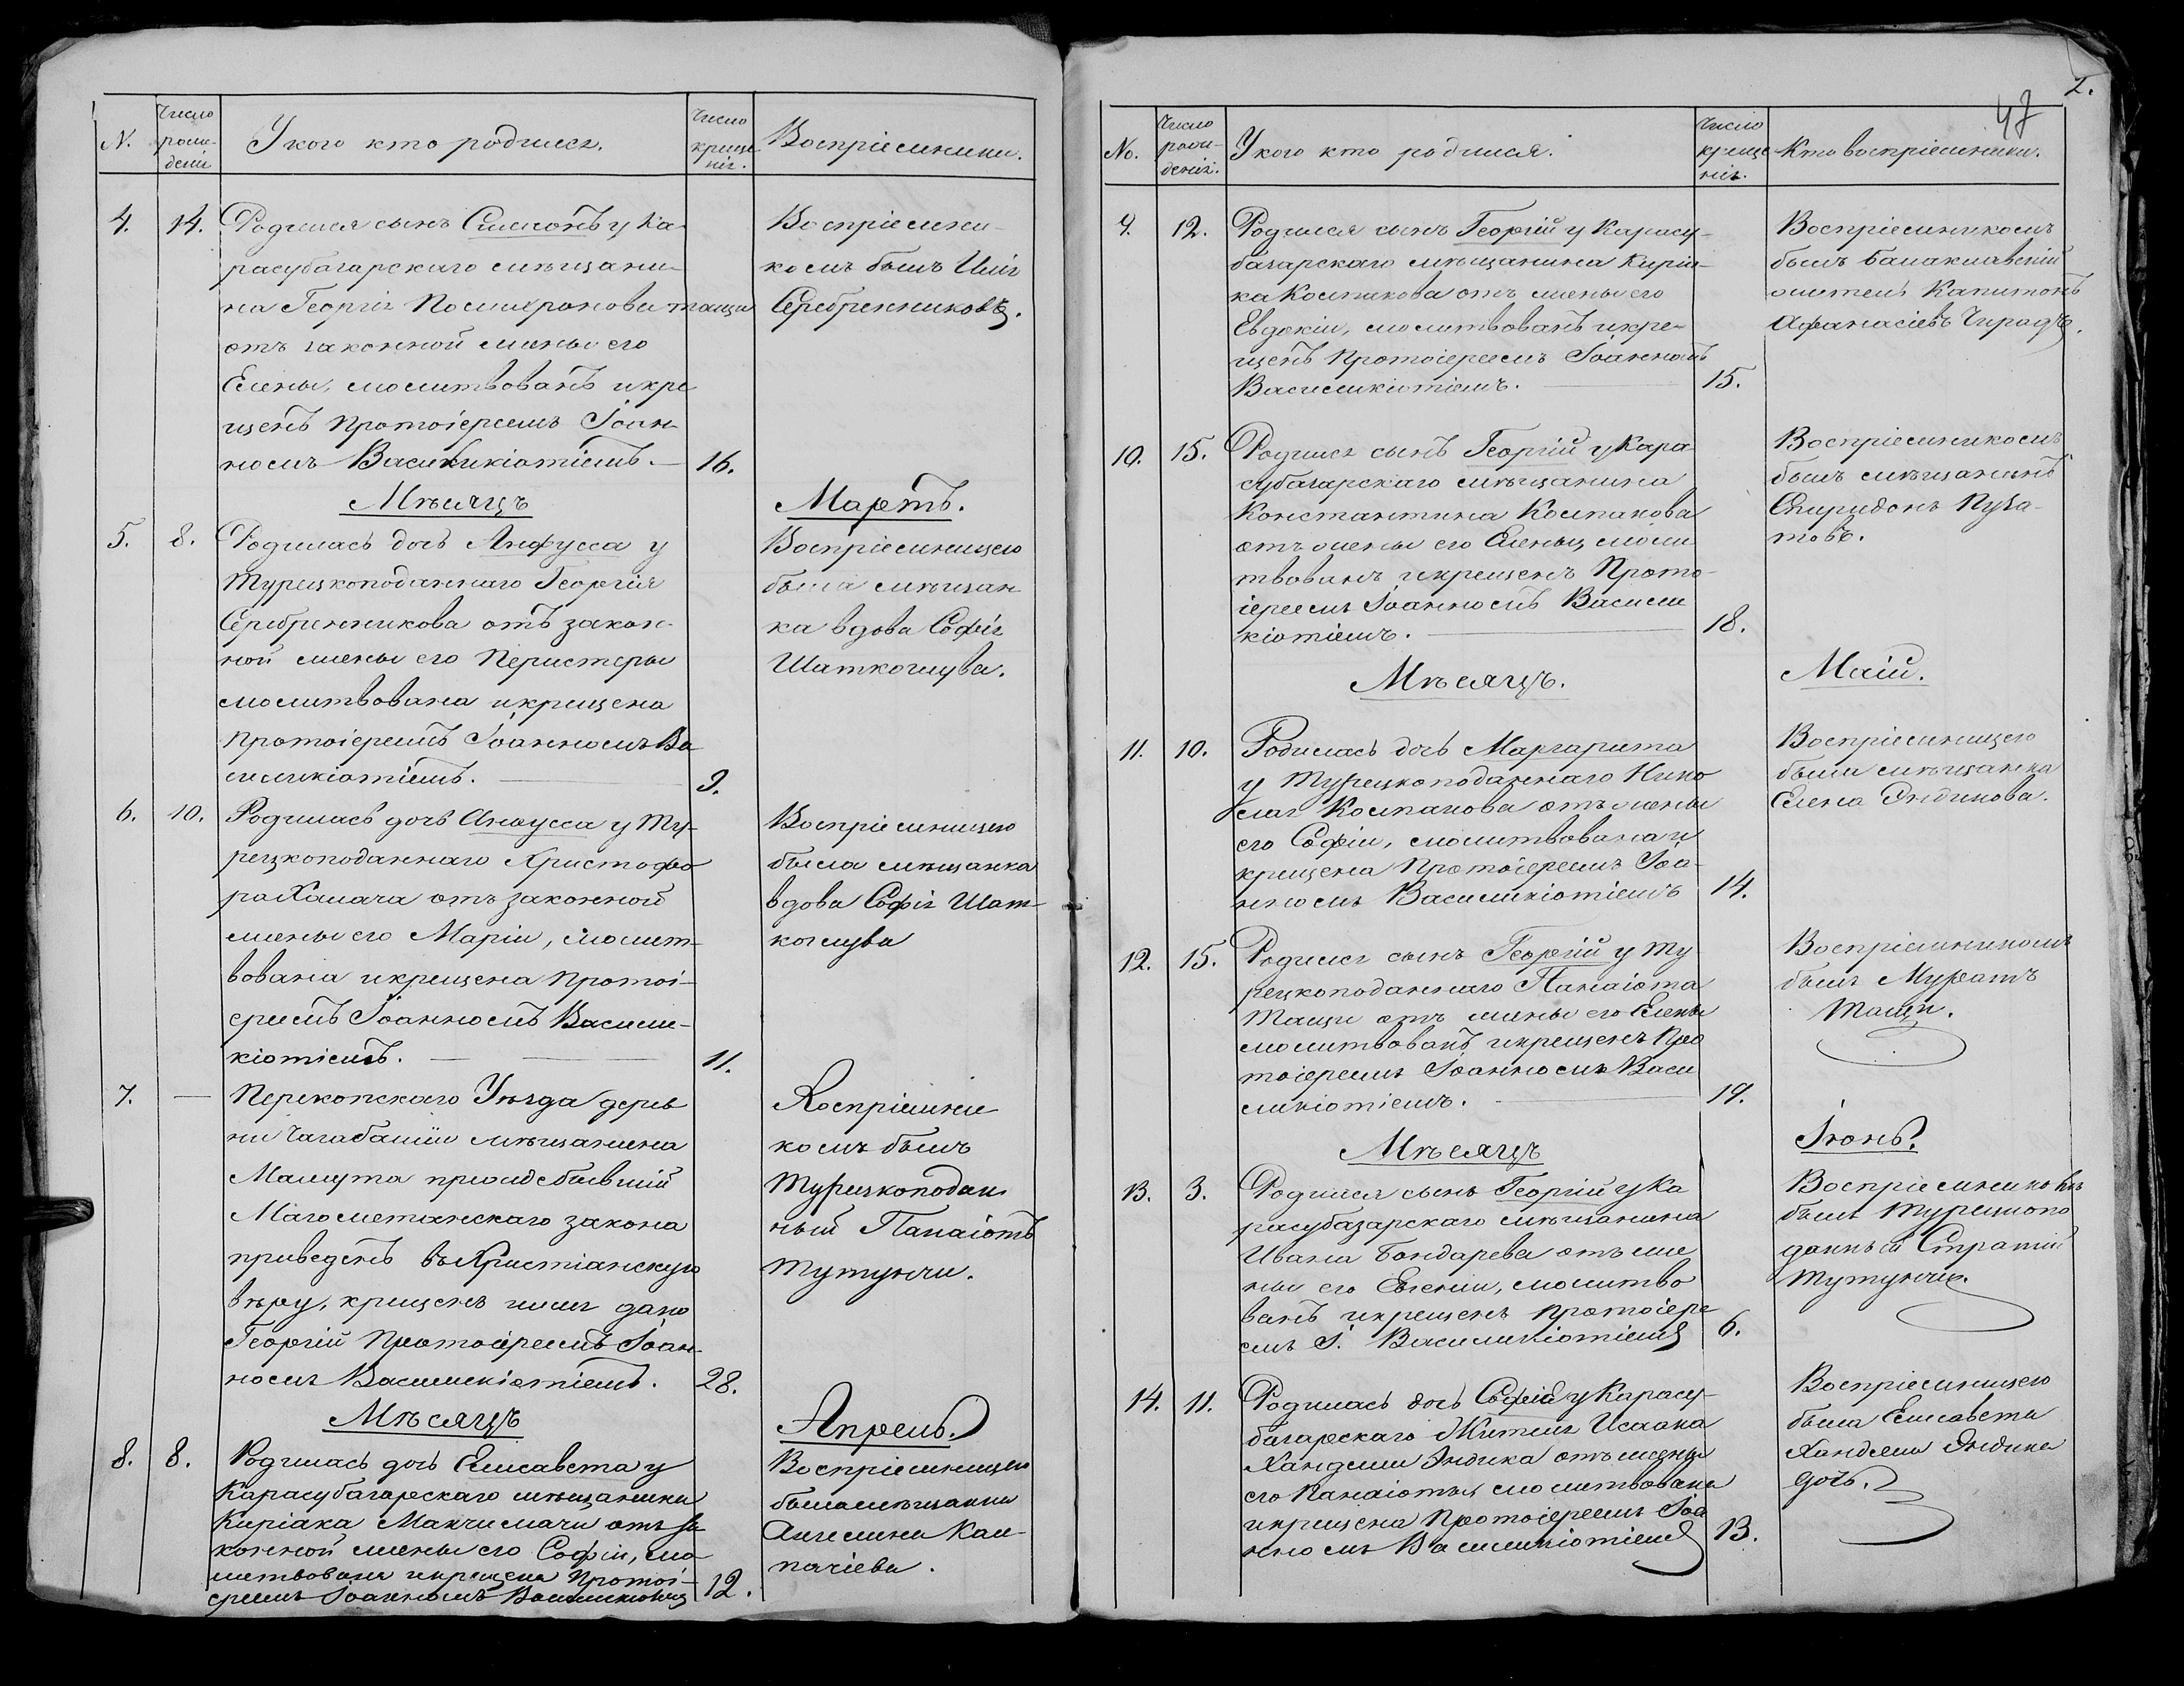 N.
Число
рож-
денія
У кого кто родился.
Число
креще
нія.
Воспріемники.
4.
14.
Родился сынъ Симеонъ у Ка-
расубазарскаго мѣщани-
на Георгія
отъ законной жены его
Елены, молитвованъ и кре
щенъ Протоіереемъ Іоан-
номъ Василикіотіемъ.
16.
Воспріемни-
комъ былъ Илія
Серебренниковъ.
Мѣсяцъ
Мартъ.
5.
8.
Родилась дочь Анфусса у
Турецкоподаннаго Георгія
Серебренникова отъ закон-
ной жены его Перистеры
молитвована и крещена
Протоіереемъ Іоанномъ Ва
силикіотіемъ.
9.
Воспріемницею
была мѣщан
ка вдова Софія
6.
10.
Родилась дочь Анфусса у Ту-
рецкоподаннаго Христофо
ра Халача отъ законной
жены его Маріи, молит-
вована и крещена Протоі-
ереемъ Іоанномъ Васили-
кіотіемъ.
11.
Воспріемницею
была мѣщанка
вдова Софія
7.
Перекопскаго Уѣзда дерев
ни мѣщанина
Мамута прежде бывшій
Магометанскаго закона
приведенъ въ Христіанскую
вѣру, крещенъ имя дано
Георгій Протоіереемъ Іоан-
номъ Василикіотіемъ.
28.
Воспріемни
комъ былъ
Турецкоподан
ный Панаіотъ
Тутунчи.
Мѣсяцъ
Апрель.
8.
8.
Родилась дочь Елисавета у
Карасубазарскаго мѣщанина
Киріака отъ за
конной жены его Софіи, мо
литвована и крещена Протоі-
ереемъ Іоанномъ
12.
Воспріемницею
была мѣщанка
Ангелина
2.
47
No.
Число
рож-
денія.
У кого кто родился.
Число
креще
нія.
Кто воспріемники.
9.
12.
Родился сынъ Георгій у Карасу-
базарскаго мѣщанина Кирія-
ка Колпакова отъ жены его
Евдокіи, молитвованъ и кре-
щенъ Протоіереемъ Іоанномъ
Василикіотіемъ.
15.
Воспріемникомъ
былъ Балаклавскій
житель Капитонъ
Афанасіевъ
10.
15.
Родился сынъ Георгій у Кара
субазарскаго мѣщанина
Константина Колпакова
отъ жены его Елены, моли
твованъ и крещенъ Прото-
іереемъ Іоанномъ Васили
кіотіемъ.
18.
Воспріемникомъ
былъ мѣщанинъ
Спиридонъ Пуза-
товъ.
Мѣсяцъ.
Маій.
11.
10.
Родилась дочь Маргарита
у Турецкоподаннаго Нико
лая Колпакова отъ жены
его Софіи, молитвована и
крещена Протоіереемъ Іоа-
нномъ Василикіотіемъ
14.
Воспріемницею
была мѣщанка
Елена Эндикова.
12.
15.
Родился сынъ Георгій у Ту
рецкоподаннаго Панаіота
Тащи отъ жены его Елены
молитвованъ и крещенъ Про
тоіереемъ Іоанномъ Васи
ликіотіемъ.
19.
Воспріемникомъ
былъ Муратъ
Тащи.
Мѣсяцъ
Іюнь.
13.
3.
Родился сынъ Георгій у Ка
расубазарскаго мѣщанина
Ивана Бондарева отъ же
ны его Евгеніи, молитво
ванъ и крещенъ Протоіере
емъ І. Василикіотіемъ
6.
Воспріемникомъ
былъ Турецкопо
данный Стратій
Тутунчи.
14.
11.
Родилась дочь Софія у Карасу-
базарскаго Жителя Исаака
Эндика отъ жены
его Панаіоты молитвована
и крещена Протоіереемъ Іоа
нномъ Василикіотіемъ
13.
Воспріемницею
была Елисавета
Эндика
дочь.